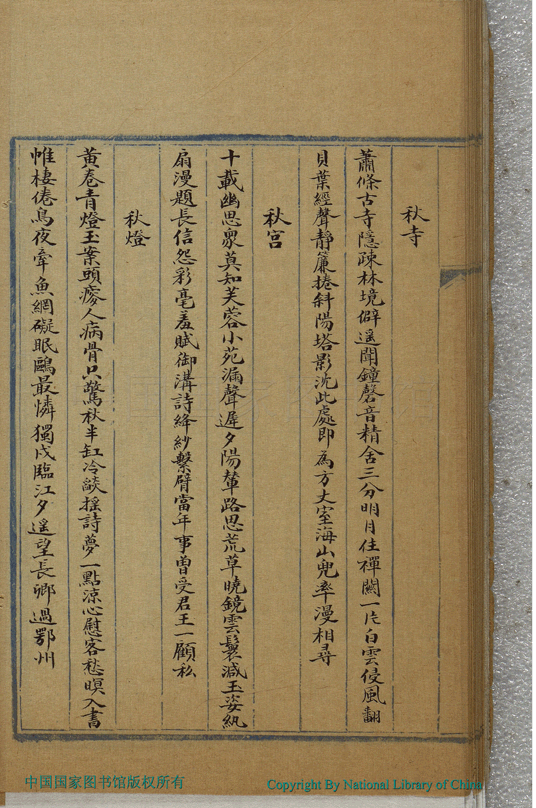 秋寺
蕭條古寺隱疎林境僻遥聞鐘磬音精舍三分明月住禪關一片白雲侵風翻
貝葉經聲靜簾捲斜陽塔影沈此處即為方丈室海山兜率漫相尋
秋宮
十載幽思衆莫知芙蓉小苑漏聲遲夕陽輦路思荒草曉鏡雲鬟減玉姿紈
扇漫題長信怨彩毫羞賦御溝詩絳紗繫臂當年事曾受君王一顧私
秋燈
黃卷青燈玉案頭瘮人病骨只驚秋半缸冷燄揺詩夢一點涼心慰客愁暝入書
帷棲倦鳥夜牽魚網礙眠鷗最憐獨戍臨江夕遥望長卿過鄂州
中国国家图书馆版权所有
Copyright By National Library of China